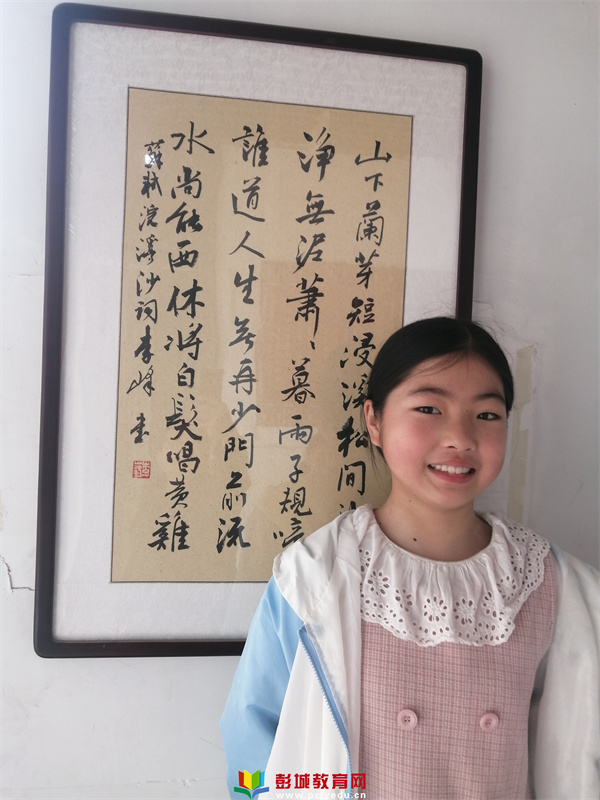 山下蘭芽短浸溪松間
淨無泥蕭〻暮雨子規啼
誰道人生無再少門前流
水尚能西休將白髮唱黄雞
蘇軾浣溪沙詞李峰書
彭城教育网
www.pcjyedu.cn